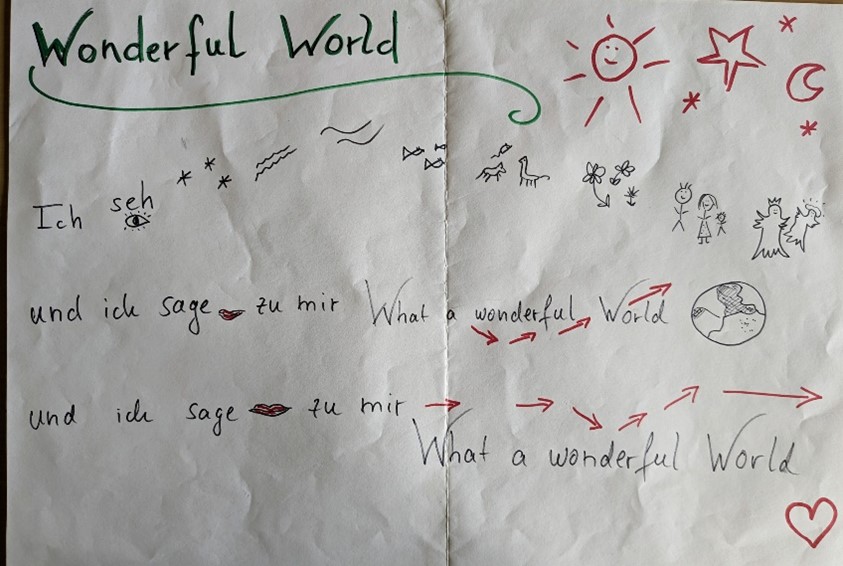 Wonderful World
Ich seh
und ich sage zu mir What a wonderful World
und ich sage zu mir
What a wonderful World